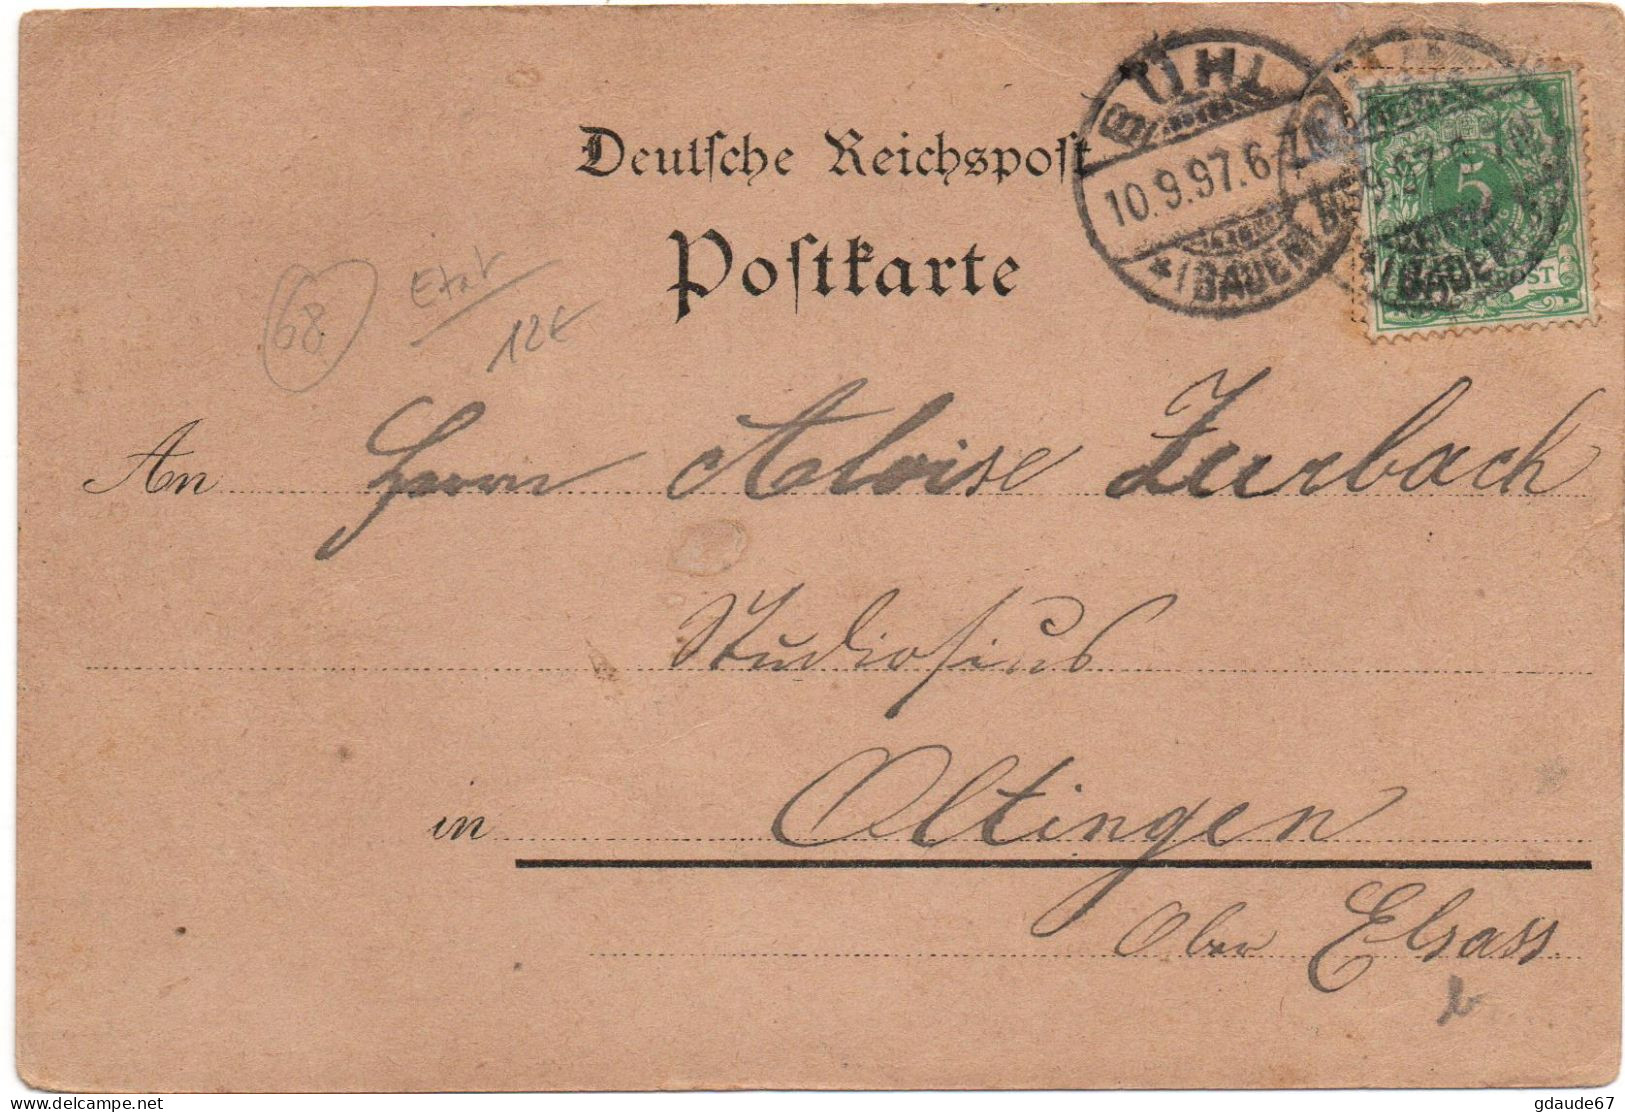 Deutsche Reichspost
Postkarte
BÜHL
10.9.97.6-7N.
*(BADEN)
5
POST
68
Etat
12€
An Herrn Aloise Zurbach
Studiosius
in Oltingen
Ober Elsass.
delcampe.net
gdaude67